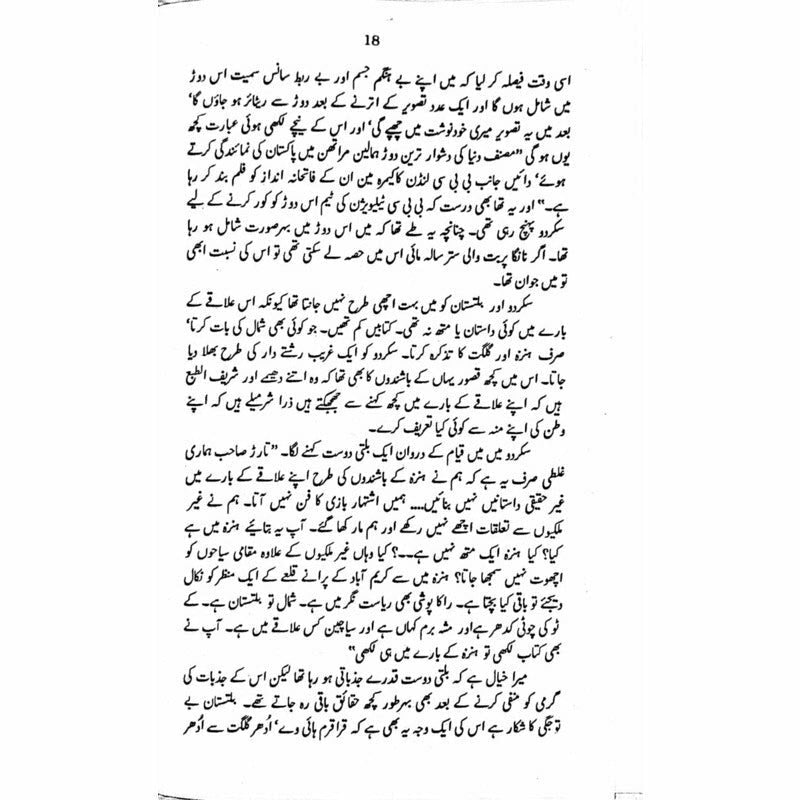 18
اسی وقت فیصلہ کر لیا کہ میں اپنے بے ہنگم جسم اور بے ربط سانس سمیت اس دوڑ
میں شامل ہوں گا اور ایک عدد تصویر کے اترنے کے بعد دوڑ سے ریٹائر ہو جاؤں گا‘
بعد میں یہ تصویر میری خودنوشت میں چھپے گی‘ اور اس کے نیچے لکھی ہوئی عبارت کچھ
یوں ہو گی ”مصنف دنیا کی دشوار ترین دوڑ ہمالین مراتھن میں پاکستان کی نمائندگی کرتے
ہوئے‘ دائیں جانب بی بی سی لنڈن کا کیمرہ مین ان کے فاتحانہ انداز کو فلم بند کر رہا
ہے۔“ اور یہ تھا بھی درست کہ بی بی سی ٹیلیویژن کی ٹیم اس دوڑ کو کور کرنے کے لیے
سکردو پہنچ رہی تھی۔ چنانچہ یہ طے تھا کہ میں اس دوڑ میں بہرصورت شامل ہو رہا
تھا۔ اگر نانگا پربت والی ستر سالہ مائی اس میں حصہ لے سکتی تھی تو اس کی نسبت ابھی
تو میں جوان تھا۔
سکردو اور بلتستان کو میں بہت اچھی طرح نہیں جانتا تھا کیونکہ اس علاقے کے
بارے میں کوئی داستان یا متھ نہ تھی۔ کتابیں کم تھیں۔ جو کوئی بھی شمال کی بات کرتا‘
صرف ہنزہ اور گلگت کا تذکرہ کرتا۔ سکردو کو ایک غریب رشتے دار کی طرح بھلا دیا
جاتا۔ اس میں کچھ قصور یہاں کے باشندوں کا بھی تھا کہ وہ اتنے دھیمے اور شریف الطبع
ہیں کہ اپنے علاقے کے بارے میں کچھ کہنے سے جھجکتے ہیں ذرا شرمیلے ہیں کہ اپنے
وطن کی اپنے منہ سے کوئی کیا تعریف کرے۔
سکردو میں میں قیام کے دروان ایک بلتی دوست کہنے لگا۔ ”تارڑ صاحب ہماری
غلطی صرف یہ ہے کہ ہم نے ہنزہ کے باشندوں کی طرح اپنے علاقے کے بارے میں
غیر حقیقی داستانیں نہیں بنائیں.... ہمیں اشتہار بازی کا فن نہیں آتا۔ ہم نے غیر
ملکیوں سے تعلقات اچھے نہیں رکھے اور ہم مار کھا گئے۔ آپ یہ بتائیے ہنزہ میں ہے
کیا؟ کیا ہنزہ ایک متھ نہیں ہے۔۔؟ کیا وہاں غیر ملکیوں کے علاوہ مقامی سیاحوں کو
اچھوت نہیں سمجھا جاتا؟ ہنزہ میں سے کریم آباد کے پرانے قلعے کے ایک منظر کو نکال
دیجئے تو باقی کیا بچتا ہے۔ راکا پوشی بھی ریاست نگر میں ہے۔ شمال تو بلتستان ہے۔ کے
ٹو کی چوٹی کدھر ہے اور مشہ برم کہاں ہے اور سیاچین کس علاقے میں ہے۔ آپ نے
بھی کتاب لکھی تو ہنزہ کے بارے میں ہی لکھی“
میرا خیال ہے کہ بلتی دوست قدرے جذباتی ہو رہا تھا لیکن اس کے جذبات کی
گرمی کو منفی کرنے کے بعد بھی بہرطور کچھ حقائق باقی رہ جاتے تھے۔ بلتستان بے
توجگی کا شکار ہے اس کی ایک وجہ یہ بھی ہے کہ قراقرم ہائی وے‘ اُدھر گلگت سے اُدھر